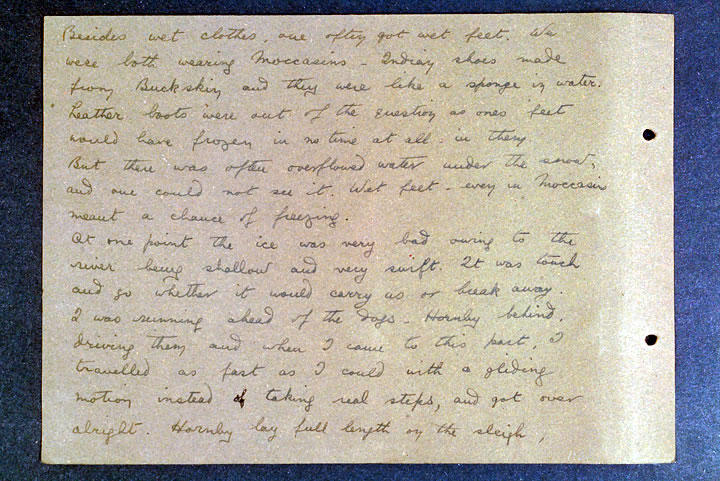 Besides wet clothes, one often got wet feet. We
were both wearing Moccasins - Indian shoes made
from Buckskin and they were like a sponge in water.
Leather boots were out of the question as ones feet
would have frozen in no time at all - in them
But there was often overflowed water under the snow,
and one could not see it. Wet feet - even in Moccasin
meant a chance of freezing.
At one point the ice was very bad owing to the
river being shallow and very swift. It was touch
and go whether it would carry us or break away.
I was running ahead of the dogs - Hornby behind,
driving them and when I came to this part, I
travelled as fast as I could with a gliding
motion instead of taking real steps, and got over
alright. Hornby lay full length on the sleigh,